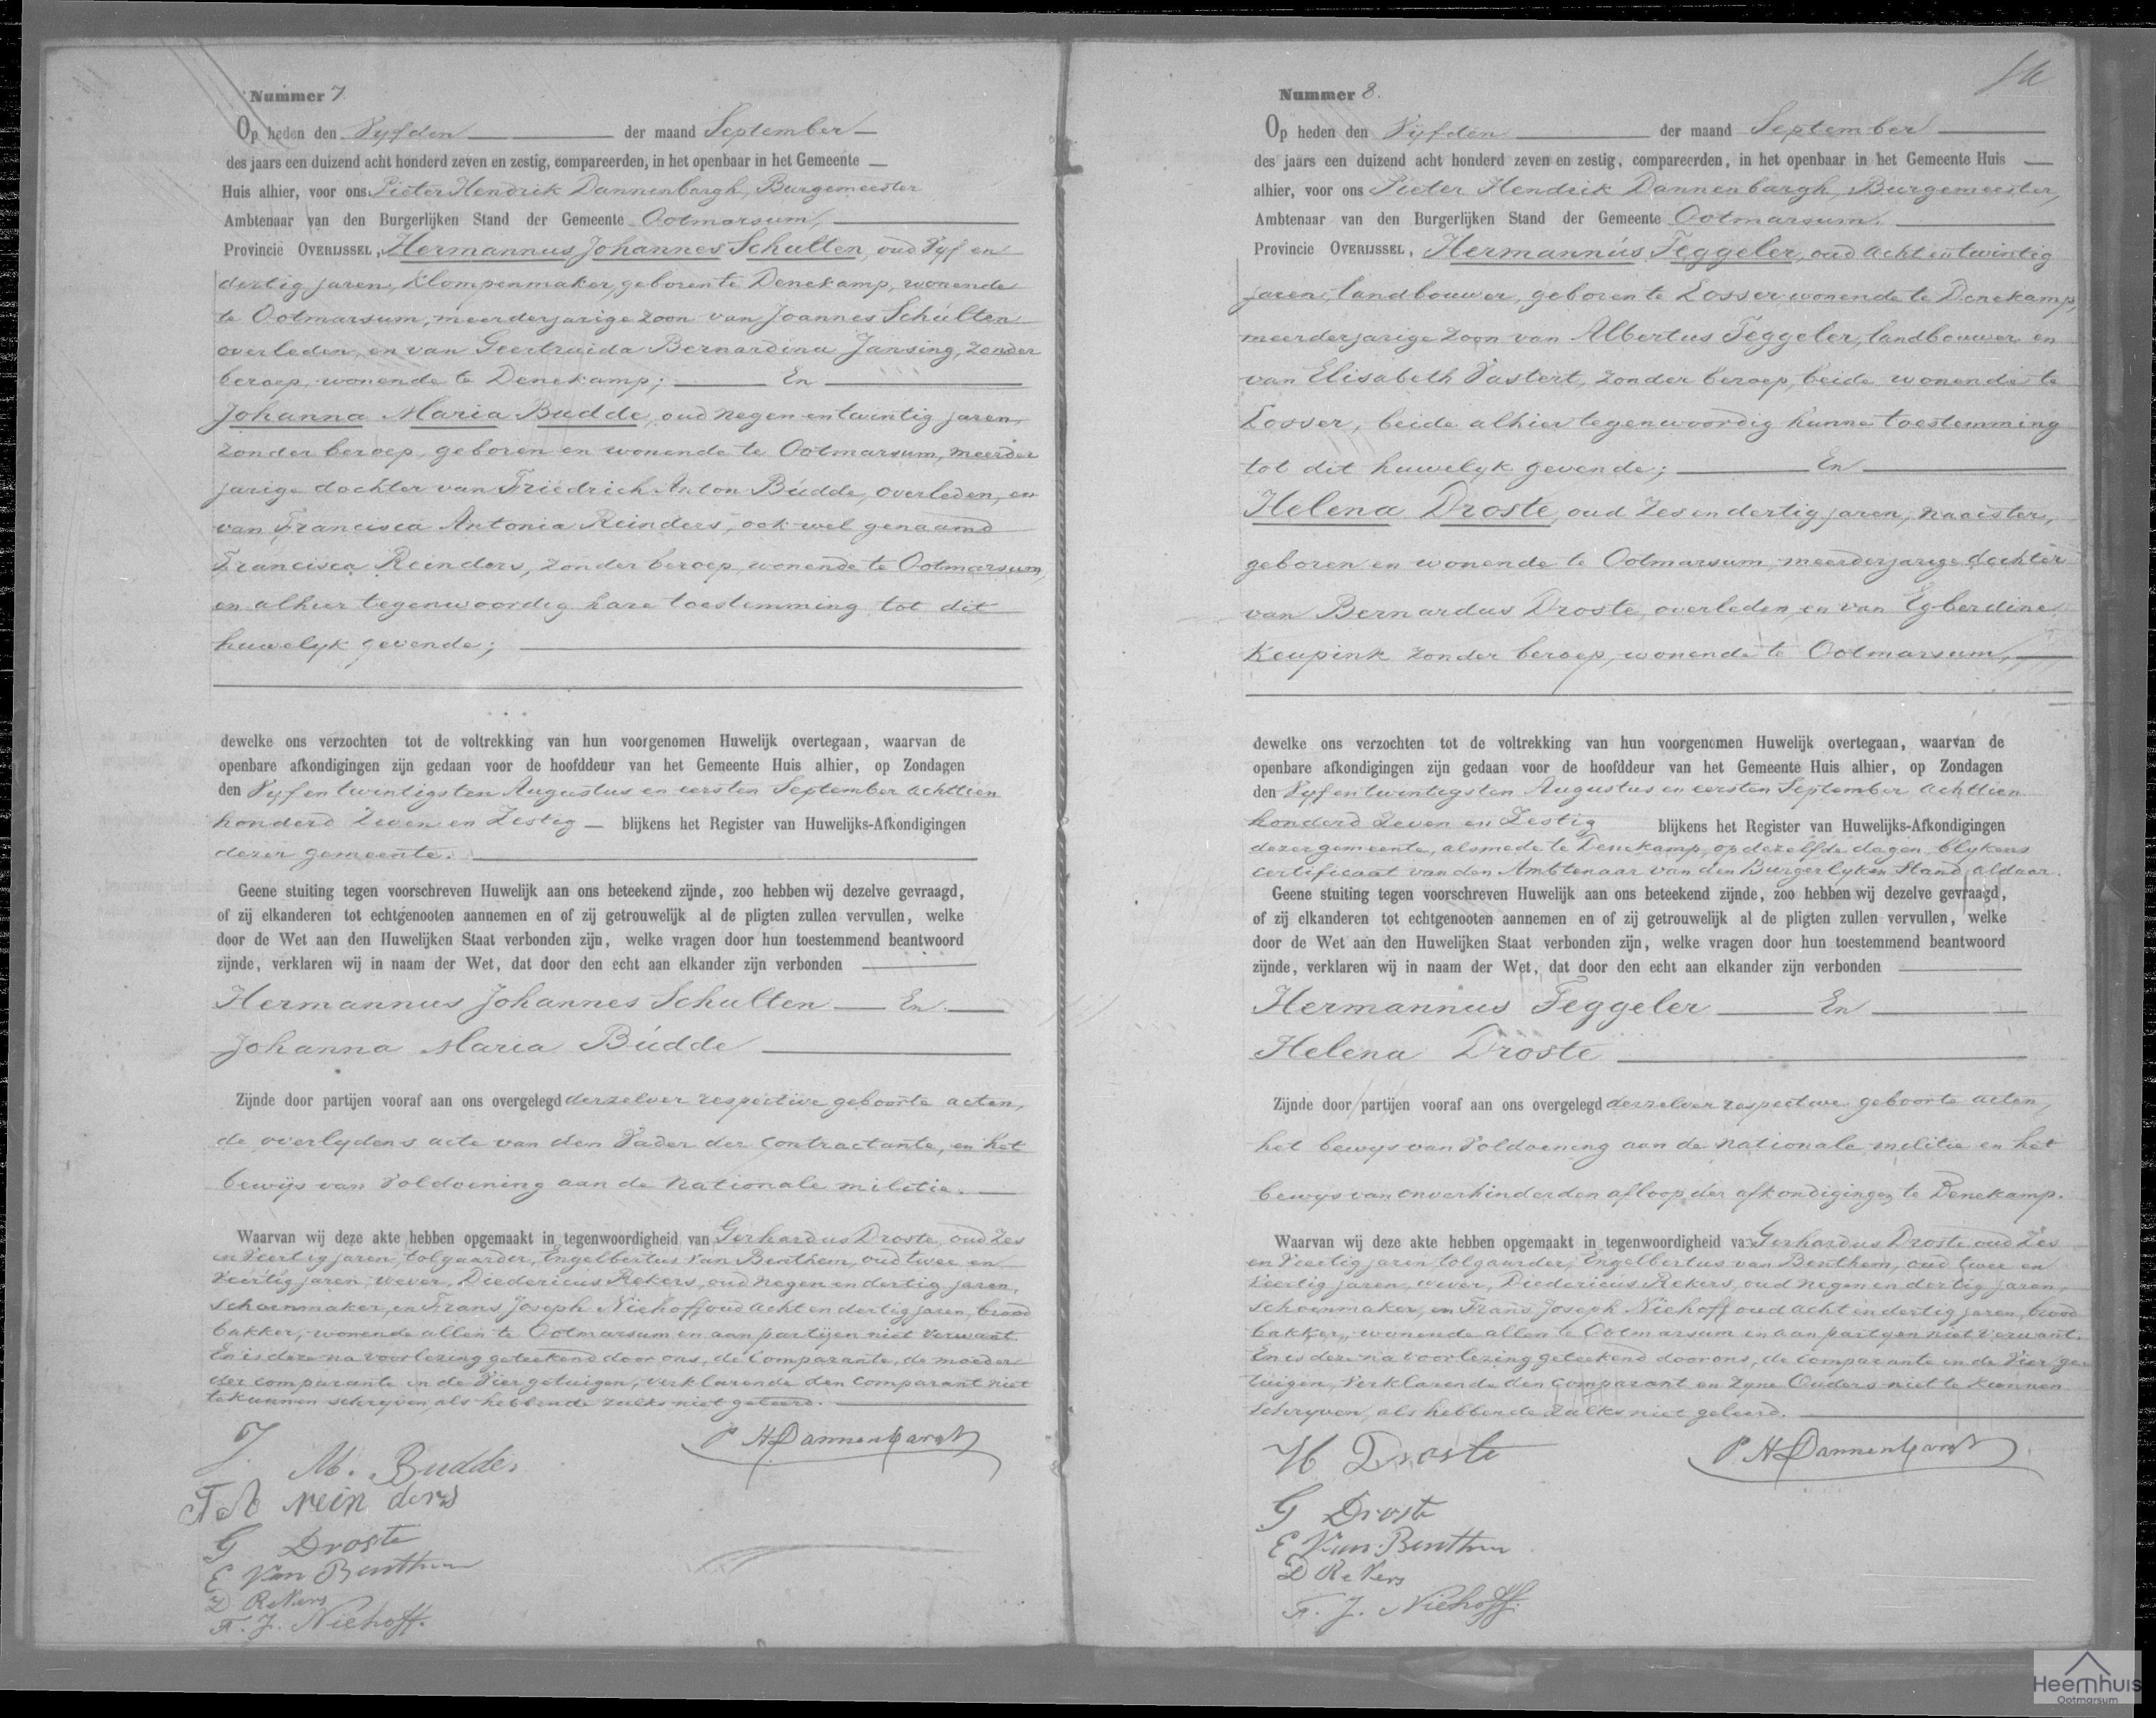 Nummer 7.
Op heden den Vyfden der maand September
des jaars een duizend acht honderd zeven en zestig, compareerden, in het openbaar in het Gemeente
Huis alhier, voor ons Pieter Hendrik Dannenbargh, Burgemeester
Ambtenaar van den Burgerlijken Stand der Gemeente Ootmarsum,
Provincie OVERIJSSEL, Hermannus Johannes Schulten, oud Vyf en
dertig jaren, Klompenmaker, geboren te Denekamp, wonende
te Ootmarsum, meerderjarige zoon van Joannes Schulten
overleden, en van Geertruida Bernardina Jansing, zonder
beroep, wonende te Denekamp; En
Johanna Maria Budde, oud negen en twintig jaren,
zonder beroep, geboren en wonende te Ootmarsum, meerder
jarige dochter van Friedrich Anton Budde, overleden, en
van Francisca Antonia Reinders, ook wel genaamd
Francisca Reinders, zonder beroep, wonende te Ootmarsum,
en alhier tegenwoordig hare toestemming tot dit
huwelyk gevende;
dewelke ons verzochten tot de voltrekking van hun voorgenomen Huwelijk overtegaan, waarvan de
openbare afkondigingen zijn gedaan voor de hoofddeur van het Gemeente Huis alhier, op Zondagen
den Vyf en twintigsten Augustus en eersten September achttien
honderd Zeven en Zestig blijkens het Register van Huwelijks-Afkondigingen
dezer gemeente.
Geene stuiting tegen voorschreven Huwelijk aan ons beteekend zijnde, zoo hebben wij dezelve gevraagd,
of zij elkanderen tot echtgenooten aannemen en of zij getrouwelijk al de pligten zullen vervullen, welke
door de Wet aan den Huwelijken Staat verbonden zijn, welke vragen door hun toestemmend beantwoord
zijnde, verklaren wij in naam der Wet, dat door den echt aan elkander zijn verbonden
Hermannus Johannes Schulten En
Johanna Maria Budde
Zijnde door partijen vooraf aan ons overgelegd derzelver respective geboorte acten,
de overlydens acte van den Vader der contractante, en het
bewijs van Voldoening aan de Nationale militie.
Waarvan wij deze akte hebben opgemaakt in tegenwoordigheid van Gerhardus Droste, oud Zes
en Veertig jaren, tolgaarder, Engelbertus Van Benthem, oud twee en
Veertig jaren, wever, Diedericus Rekers, oud negen en dertig jaren,
schoenmaker, en Frans Joseph Niehoff oud acht en dertig jaren, brood
bakker, wonende allen te Ootmarsum en aan partijen niet verwant.
En is deze na voorlezing geteekend door ons, de Comparante, de moeder
der comparante en de Vier getuigen, verklarende den Comparant niet
te kunnen schryven, als hebbende zulks niet geleerd.
P H Dannenbargh
J. M. Budde
F A reinders
G Droste
E Van Benthem
D Rekers
F. J. Niehoff.
Nummer 8.
Op heden den Vyfden der maand September
des jaars een duizend acht honderd zeven en zestig, compareerden, in het openbaar in het Gemeente Huis
alhier, voor ons Pieter Hendrik Dannenbargh, Burgemeester,
Ambtenaar van den Burgerlijken Stand der Gemeente Ootmarsum,
Provincie OVERIJSSEL, Hermannus Feggeler, oud acht en twintig
jaren, landbouwer, geboren te Losser wonende te Denekamp,
meerderjarige zoon van Albertus Feggeler, landbouwer en
van Elisabeth Vastert, zonder beroep, beide wonende te
Losser, beide alhier tegenwoordig hunne toestemming
tot dit huwelyk gevende; En
Helena Droste, oud Zes en dertig jaren, naaister,
geboren en wonende te Ootmarsum, meerderjarige dochter
van Bernardus Droste, overleden, en van Egberdine
Keupink zonder beroep, wonende te Ootmarsum,
dewelke ons verzochten tot de voltrekking van hun voorgenomen Huwelijk overtegaan, waarvan de
openbare afkondigingen zijn gedaan voor de hoofddeur van het Gemeente Huis alhier, op Zondagen
den Vyf en twintigsten Augustus en eersten September achttien
honderd Zeven en Zestig blijkens het Register van Huwelijks-Afkondigingen
dezer gemeente, alsmede te Denekamp, op dezelfde dagen blykens
certificaat van den Ambtenaar van den Burgerlyken Stand aldaar.
Geene stuiting tegen voorschreven Huwelijk aan ons beteekend zijnde, zoo hebben wij dezelve gevraagd,
of zij elkanderen tot echtgenooten aannemen en of zij getrouwelijk al de pligten zullen vervullen, welke
door de Wet aan den Huwelijken Staat verbonden zijn, welke vragen door hun toestemmend beantwoord
zijnde, verklaren wij in naam der Wet, dat door den echt aan elkander zijn verbonden
Hermannus Feggeler En
Helena Droste
Zijnde door partijen vooraf aan ons overgelegd derzelver respective geboorte acten,
het bewys van Voldoening aan de nationale militie en het
bewys van onverhinderden afloop der afkondigingen te Denekamp.
Waarvan wij deze akte hebben opgemaakt in tegenwoordigheid van Gerhardus Droste, oud Zes
en Veertig jaren tolgaarder, Engelbertus van Benthem, oud twee en
Veertig jaren, wever, Diedericus Rekers, oud negen en dertig jaren,
schoenmaker, en Frans Joseph Niehoff oud acht en dertig jaren, brood
bakker, wonende allen te Ootmarsum en aan partyen niet verwant.
En is deze na voorlezing geteekend door ons, de Comparante en de Vier ge
tuigen, verklarende den Comparant en zyne Ouders niet te kunnen
schryven, als hebbende zulks niet geleerd.
P H Dannenbargh
H Droste
G Droste
E Van Benthem
D Rekers
F. J. Niehoff.
Heemhuis
Ootmarsum